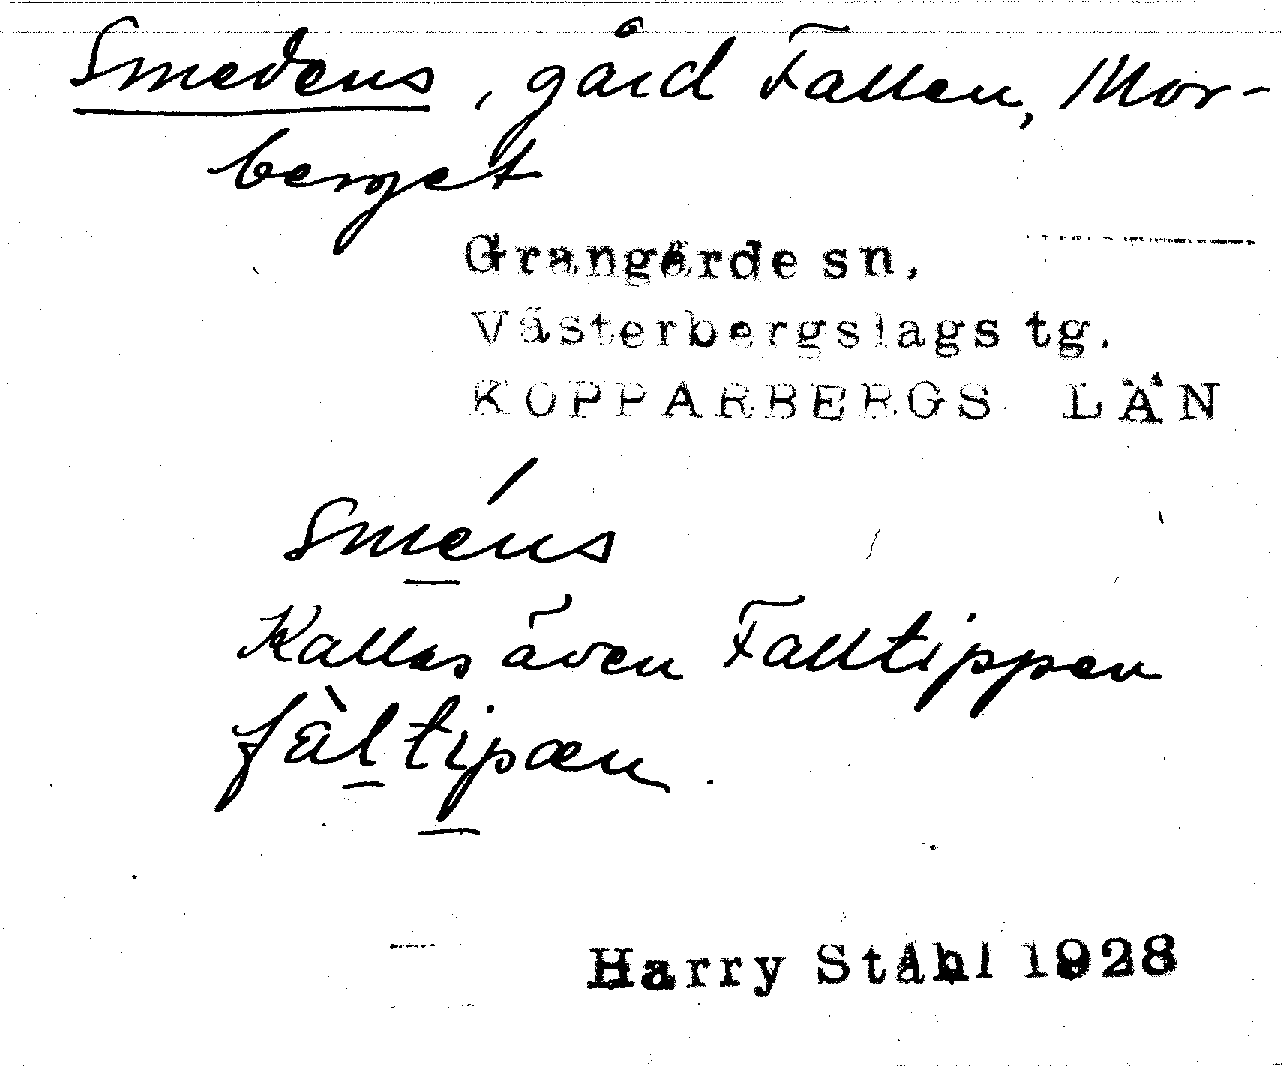 Smedens, gård Fallen, Mor-
berget
Grangärde sn.
Västerbergslags tg.
KOPPARBERGS LÄN
Sméns
Kallas även Falltippen
fàltipæn.
Harry Ståhl 1928